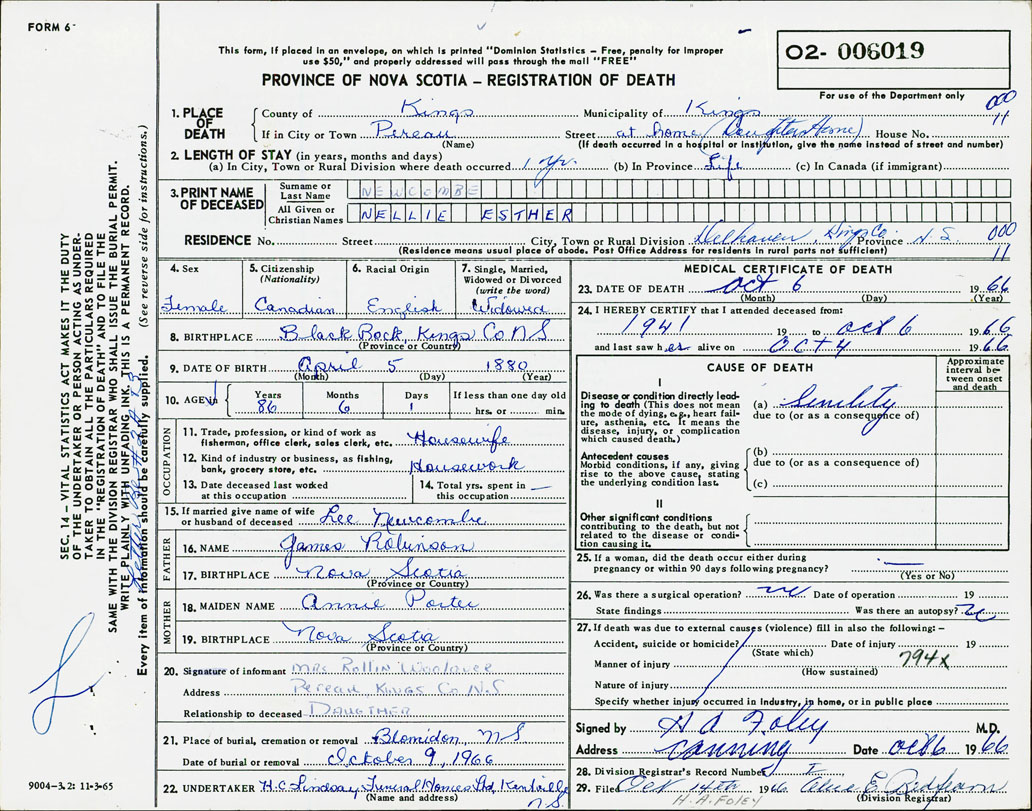 FORM 6
This form, if placed in an envelope, on which is printed "Dominion Statistics – Free, penalty for improper
use $50," and properly addressed will pass through the mail "FREE"
PROVINCE OF NOVA SCOTIA – REGISTRATION OF DEATH
O2- 006019
For use of the Department only
000
11
1. PLACE OF DEATH
County of Kings Municipality of Kings
If in City or Town Pereau Street at home (Daughters Home) House No.
(Name) (If death occurred in a hospital or institution, give the name instead of street and number)
2. LENGTH OF STAY (in years, months and days)
(a) In City, Town or Rural Division where death occurred 1 yr. (b) In Province Life (c) In Canada (if immigrant)
3. PRINT NAME OF DECEASED
Surname or Last Name NEWCOMBE
All Given or Christian Names NELLIE ESTHER
RESIDENCE No. Street City, Town or Rural Division Delhaven, Kings Co. Province N.S. 000
(Residence means usual place of abode. Post Office Address for residents in rural parts not sufficient) 11
SEC. 14 – VITAL STATISTICS ACT MAKES IT THE DUTY
OF THE UNDERTAKER OR PERSON ACTING AS UNDER-
TAKER TO OBTAIN ALL THE PARTICULARS REQUIRED
IN THE "REGISTRATION OF DEATH" AND TO FILE THE
SAME WITH THE DIVISION REGISTRAR WHO SHALL ISSUE THE BURIAL PERMIT.
WRITE PLAINLY WITH UNFADING INK. THIS IS A PERMANENT RECORD.
Every item of information should be carefully supplied. (See reverse side for instructions.)
4. Sex Female
5. Citizenship (Nationality) Canadian
6. Racial Origin English
7. Single, Married, Widowed or Divorced (write the word) Widowed
8. BIRTHPLACE Black Rock Kings Co NS
(Province or Country)
9. DATE OF BIRTH April 5 1880
(Month) (Day) (Year)
10. AGE Years 86 Months 6 Days 1 If less than one day old hrs. or min.
OCCUPATION
11. Trade, profession, or kind of work as fisherman, office clerk, sales clerk, etc. Housewife
12. Kind of industry or business, as fishing, bank, grocery store, etc. Housework
13. Date deceased last worked at this occupation
14. Total yrs. spent in this occupation —
15. If married give name of wife or husband of deceased Lee Newcombe
FATHER
16. NAME James Robinson
17. BIRTHPLACE Nova Scotia
(Province or Country)
MOTHER
18. MAIDEN NAME Annie Porter
19. BIRTHPLACE Nova Scotia
(Province or Country)
20. Signature of informant Mrs Rollin Woodover
Address Pereau Kings Co N.S
Relationship to deceased DAUGTHER
21. Place of burial, cremation or removal Blomidon, NS
Date of burial or removal October 9, 1966
22. UNDERTAKER H.C. Lindsay Funeral Homes Ltd, Kentville NS
(Name and address)
9004-3.2: 11-3-65
MEDICAL CERTIFICATE OF DEATH
23. DATE OF DEATH Oct 6 1966
(Month) (Day) (Year)
24. I HEREBY CERTIFY that I attended deceased from:
1941 19 to Oct 6 1966
and last saw her alive on Oct 4 1966
CAUSE OF DEATH
Approximate interval be-tween onset and death
I
Disease or condition directly lead-
ing to death (This does not mean
the mode of dying, e.g., heart fail-
ure, asthenia, etc. It means the
disease, injury, or complication
which caused death.)
(a) Senility
due to (or as a consequence of)
Antecedent causes
Morbid conditions, if any, giving
rise to the above cause, stating
the underlying condition last.
(b)
due to (or as a consequence of)
(c)
II
Other significant conditions
contributing to the death, but not
related to the disease or condi-
tion causing it.
25. If a woman, did the death occur either during
pregnancy or within 90 days following pregnancy? —
(Yes or No)
26. Was there a surgical operation? no Date of operation 19
State findings Was there an autopsy? no
27. If death was due to external causes (violence) fill in also the following:–
Accident, suicide or homicide? Date of injury 19
(State which)
Manner of injury 794x
(How sustained)
Nature of injury
Specify whether injury occurred in Industry, in home, or in public place
Signed by H A Foley M.D.
Address Canning Date Oct 6 1966
28. Division Registrar's Record Number
29. Filed Oct 14th 1966 Alice E
(Division Registrar)
H.A. FOLEY